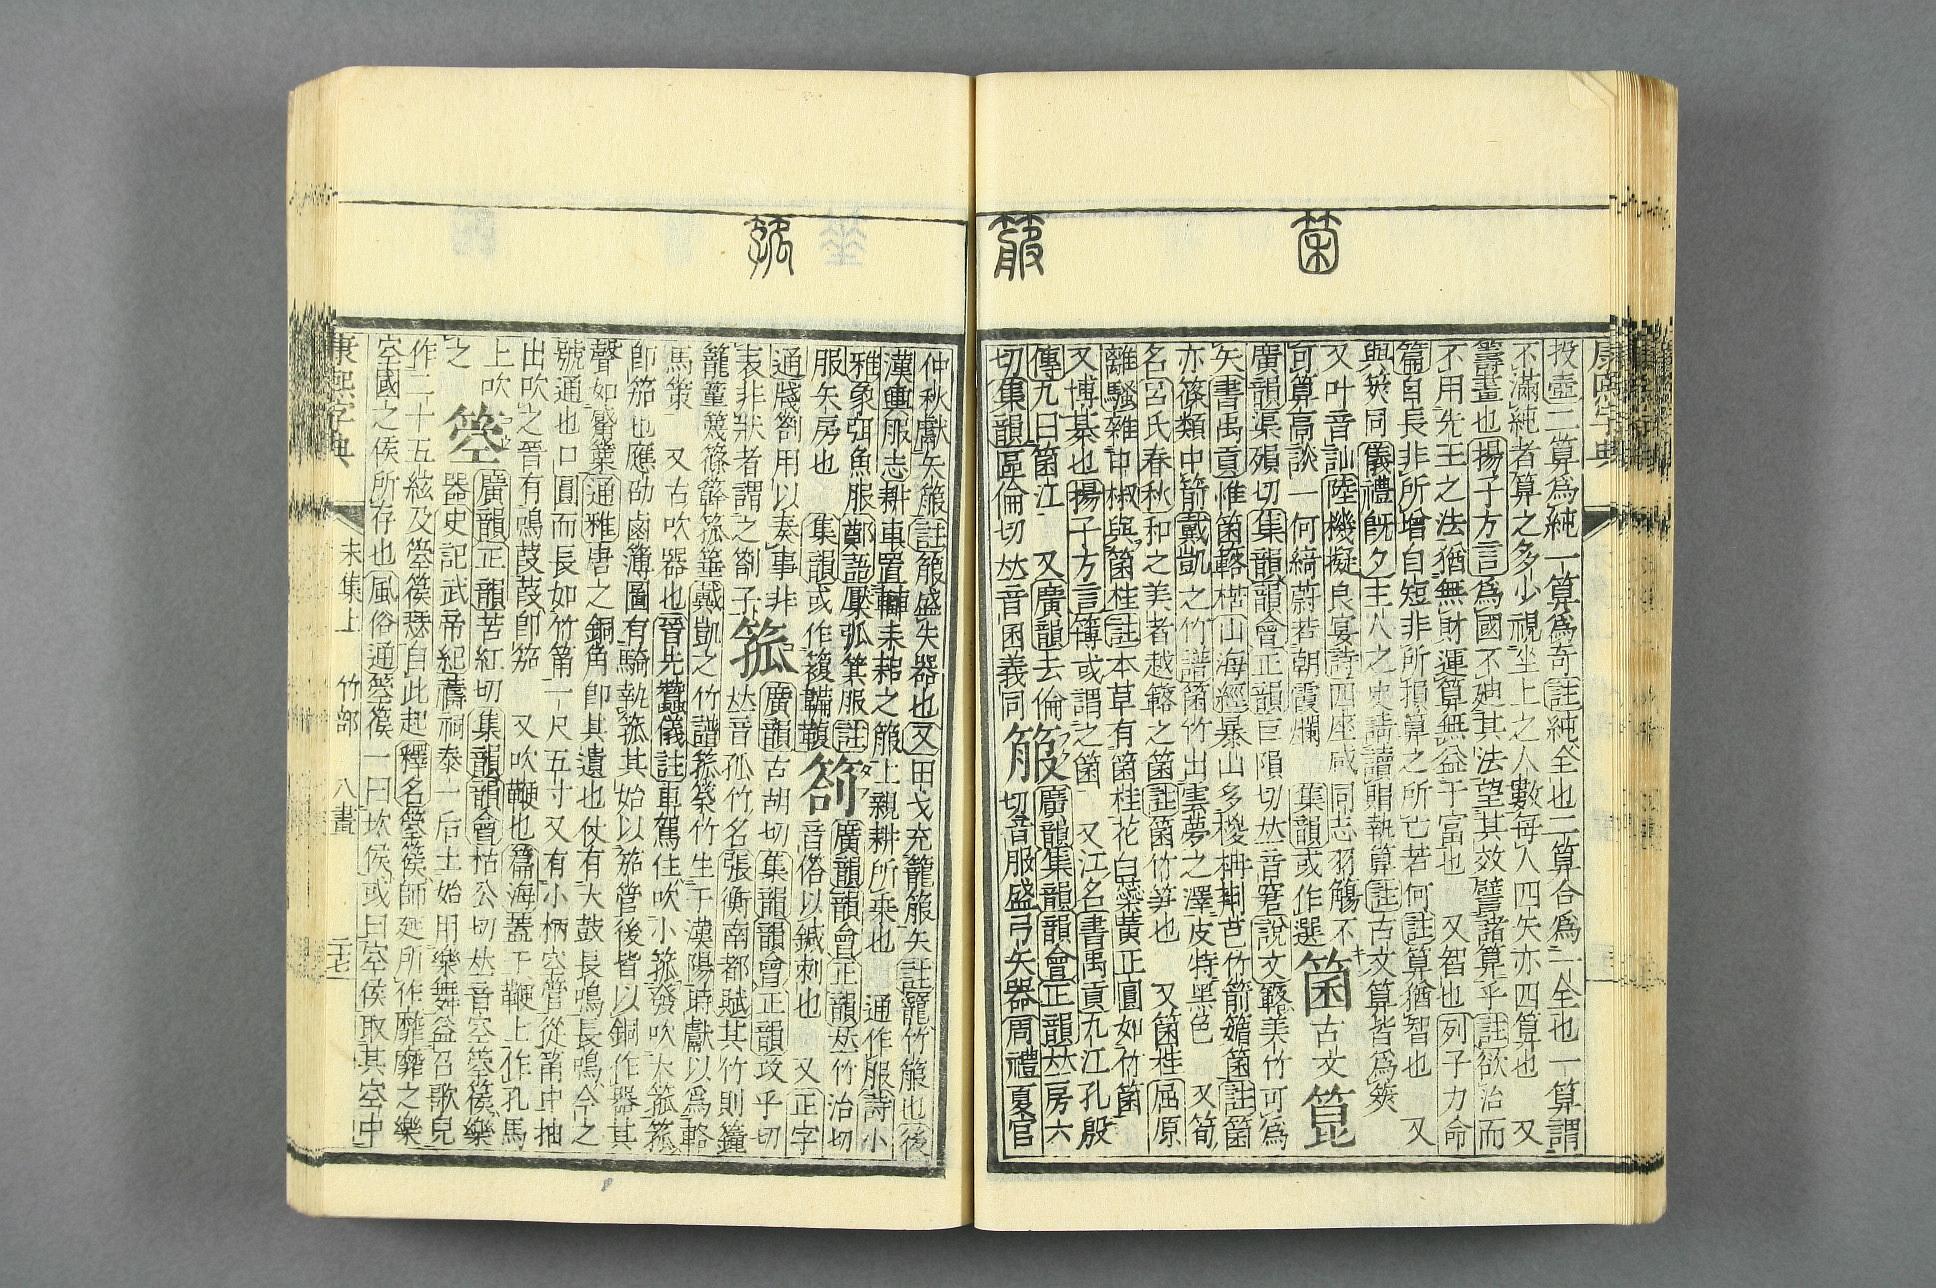 箘
箙
箛
康熙字典
投壺二算爲純一算爲奇註純全也二算合爲一全也一算謂
不滿純者算之多少視坐上之人數每人四矢亦四算也 又
籌畫也揚子方言爲國不迪其法望其效譬諸算乎註欲治而
不用先王之法猶無財運算無益于富也 又智也列子力命
篇自長非所增自短非所損算之所亡若何註算猶智也 又
與筴同儀禮旣夕主人之史請讀賵執算註古文算皆爲筴
又叶音訕陸機擬良宴詩四座咸同志羽觴不
可算高談一何綺蔚若朝霞爛 集韻或作選
箘 古文 箟
廣韻渠殞切集韻韻會正韻巨隕切𠀤音窘說文簬美竹可爲
矢書禹貢惟箘簵楛山海經暴山多椶枬荆芑竹箭䉋箘註箘
亦篠類中箭戴凱之竹譜箘竹出雲夢之澤皮特黑色 又筍
名呂氏春秋和之美者越簵之箘註箘竹筍也 又箘桂屈原
離騷雜申椒與箘桂註本草有箘桂花白蘂黃正圓如竹箘
又博棊也揚子方言簙或謂之箘 又江名書禹貢九江孔殷
傳九曰箘江 又廣韻去倫
切集韻區倫切𠀤音囷義同
箙 廣韻集韻韻會正韻𠀤房六
切音服盛弓矢器周禮夏官
仲秋獻矢箙註箙盛矢器也又田弋充籠箙矢註籠竹箙也後
漢輿服志耕車置耒耜之箙上親耕所乘也 通作服詩小
雅象弭魚服鄭語檿弧箕服註
服矢房也 集韻或作
箚 廣韻韻會正韻𠀤竹洽切
音俗以鍼刺也 又正字
通牋箚用以奏事非
表非狀者謂之箚子
箛 廣韻古胡切集韻韻會正韻攻乎切
𠀤音孤竹名張衡南都賦其竹則籦
籠篾篠簳箛箠戴凱之竹譜箛竹生于漢陽時獻以爲輅
馬策 又古吹器也晉先蠶儀註車駕住吹小箛發吹大箛箛
卽笳也應劭鹵簿圖有騎執箛其始以笳管後皆以銅作器其
聲如觱篥通雅唐之銅角卽其遺也仗有大鼓長鳴長鳴今之
號通也口圓而長如竹筩一尺五寸又有小柄空管從筩中抽
出吹之晉有鳴葭葭卽笳 又吹鞭也篇海蓋于鞭上作孔馬
上吹之
箜 廣韻正韻苦紅切集韻韻會枯公切𠀤音空箜篌樂
器史記武帝紀禱祠泰一后土始用樂舞益召歌兒
作二十五絃及箜篌瑟自此起釋名箜篌師延所作靡靡之樂
空國之侯所存也風俗通箜篌一曰坎侯或曰空侯取其空中
康熙字典 未集上 竹部 八畫 二十七